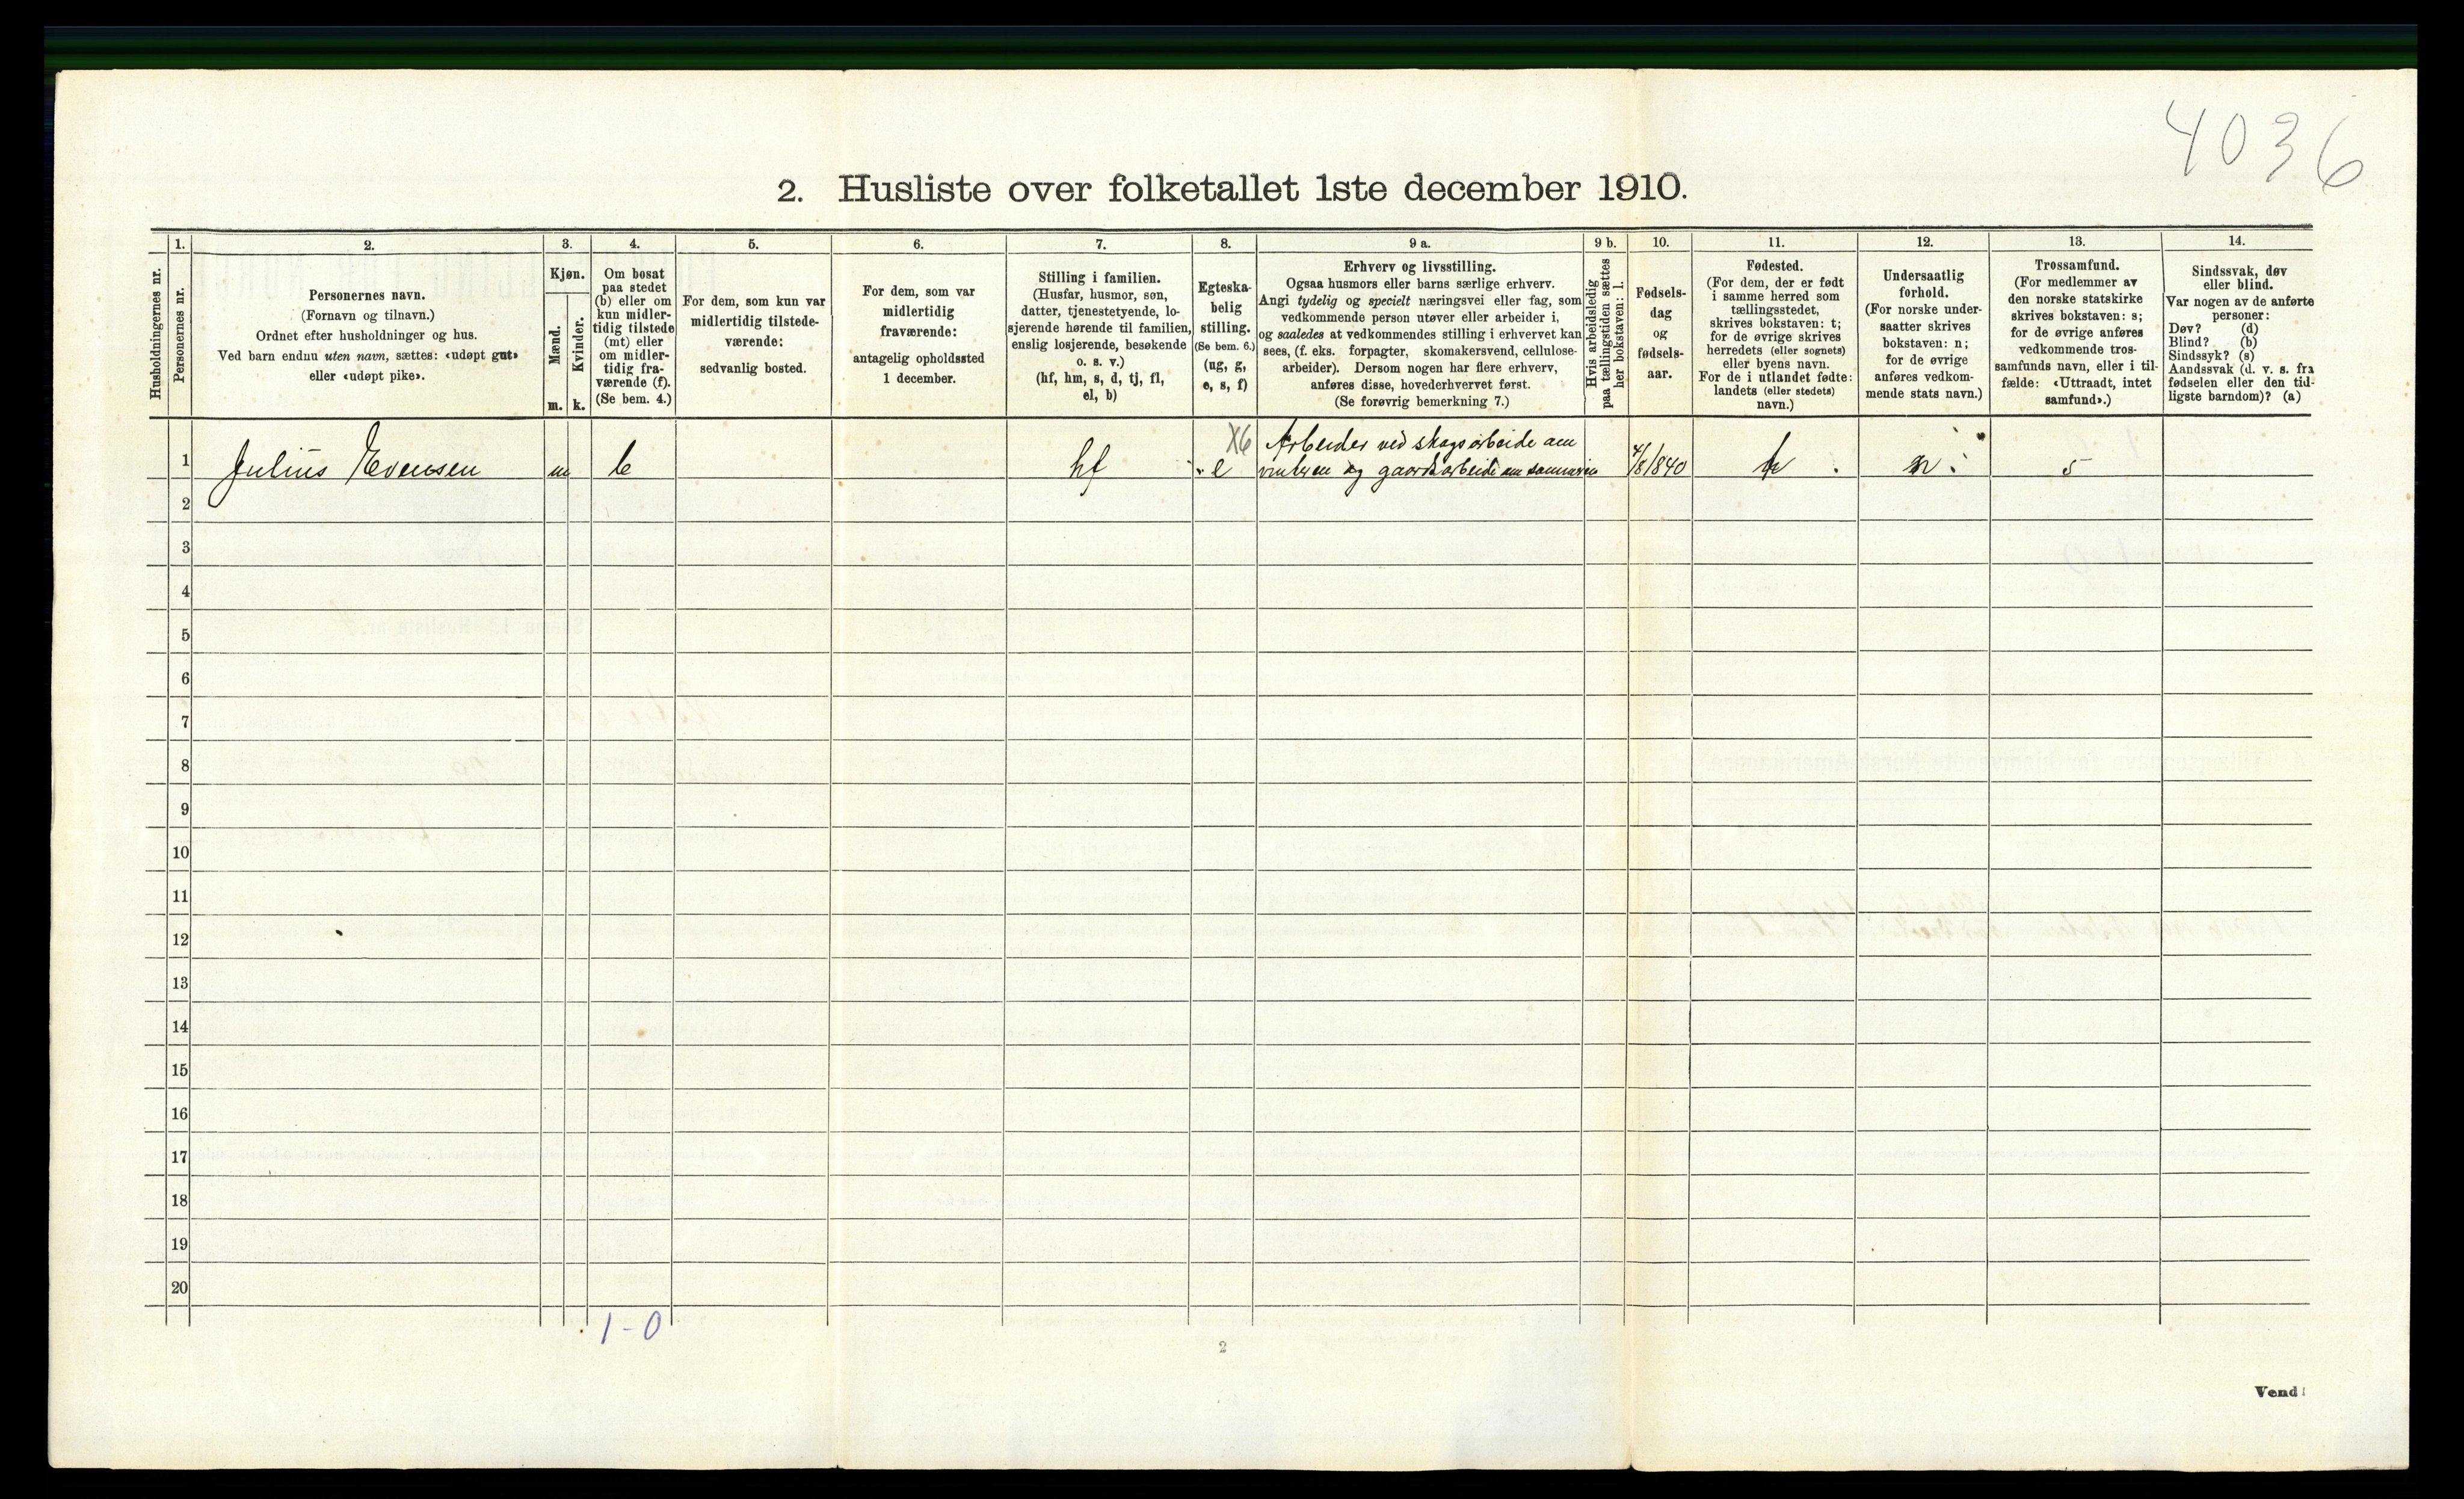 4036
2. Husliste over folketallet 1ste december 1910.
Husholdningernes nr.
1.
Personernes nr.
2.
Personernes navn.
(Fornavn og tilnavn.)
Ordnet efter husholdninger og hus.
Ved barn endnu uten navn, sættes: «udøpt gut»
eller «udøpt pike».
3.
Kjøn.
Mænd.
Kvinder.
m. k.
4.
Om bosat
paa stedet
(b) eller om
kun midler-
tidig tilstede
(mt) eller
om midler-
tidig fra-
værende (f).
(Se bem. 4.)
5.
For dem, som kun var
midlertidig tilstede-
værende:
sedvanlig bosted.
6.
For dem, som var
midlertidig
fraværende:
antagelig opholdssted
1 december.
7.
Stilling i familien.
(Husfar, husmor, søn,
datter, tjenestetyende, lo-
sjerende hørende til familien,
enslig losjerende, besøkende
o. s. v.)
(hf, hm, s, d, tj, fl,
el, b)
8.
Egteska-
belig
stilling.
(Se bem. 6.)
(ug, g,
e, s, f)
9 a.
Erhverv og livsstilling.
Ogsaa husmors eller barns særlige erhverv.
Angi tydelig og specielt næringsvei eller fag, som
vedkommende person utøver eller arbeider i,
og saaledes at vedkommendes stilling i erhvervet kan
sees, (f. eks. forpagter, skomakersvend, cellulose-
arbeider). Dersom nogen har flere erhverv,
anføres disse, hovederhvervet først.
(Se forøvrig bemerkning 7.)
9 b.
Hvis arbeidsledig
paa tællingstiden sættes
her bokstaven: l.
10.
Fødsels-
dag
og
fødsels-
aar.
11.
Fødested.
(For dem, der er født
i samme herred som
tællingsstedet,
skrives bokstaven: t;
for de øvrige skrives
herredets (eller sognets)
eller byens navn.
For de i utlandet fødte:
landets (eller stedets)
navn.)
12.
Undersaatlig
forhold.
(For norske under-
saatter skrives
bokstaven: n;
for de øvrige
anføres vedkom-
mende stats navn.)
13.
Trossamfund.
(For medlemmer av
den norske statskirke
skrives bokstaven: s;
for de øvrige anføres
vedkommende tros-
samfunds navn, eller i til-
fælde: «Uttraadt, intet
samfund».)
14.
Sindssvak, døv
eller blind.
Var nogen av de anførte
personer:
Døv? (d)
Blind? (b)
Sindssyk? (s)
Aandssvak (d. v. s. fra
fødselen eller den tid-
ligste barndom)? (a)
X6 Arbeider ved skogsarbeide om
1 Julius Evensen m b hf e vinteren og gaardsarbeide om sommeren 4/8/840 t n s
2
3
4
5
6
7
8
9
10
11
12
13
14
15
16
17
18
19
20
1-0
2
Vend!